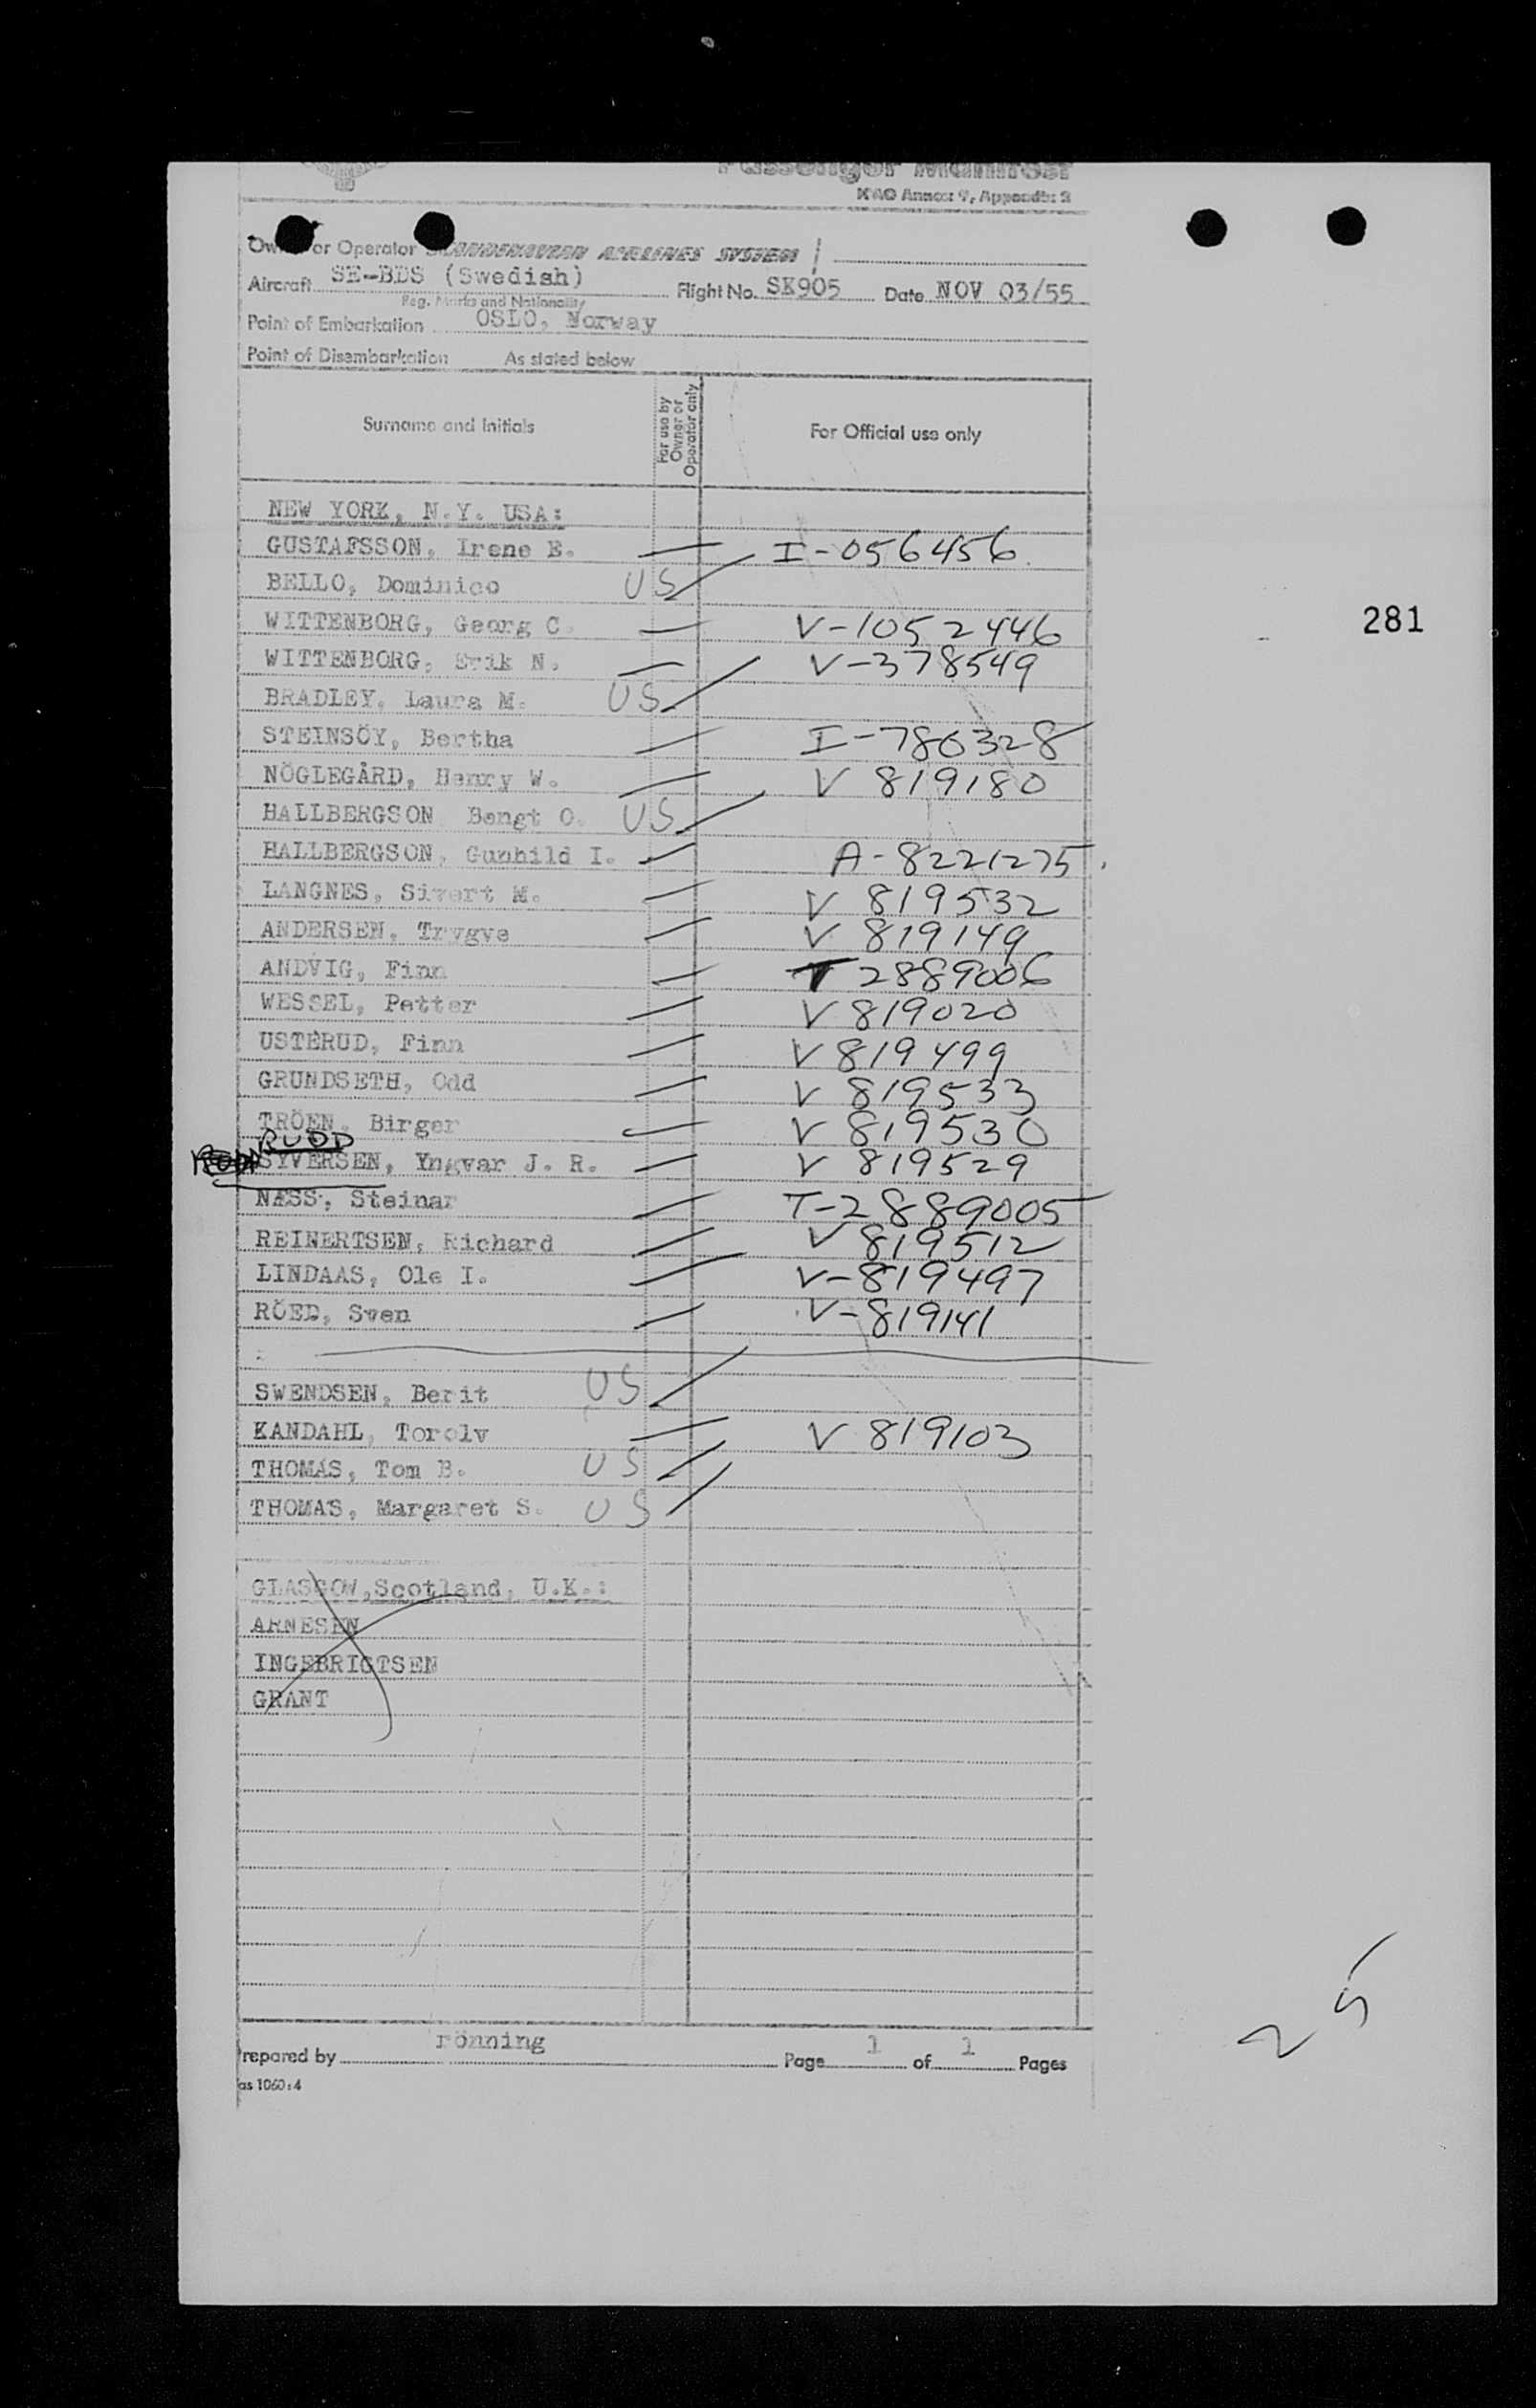 Passenger Manifest
ICAO Annex 9, Appendix 3
Owner or Operator SCANDINAVIAN AIRLINES SYSTEM
Aircraft SE-BDS (Swedish) Flight No. SK905 Date NOV 03/55
Reg. Marks and Nationality
Point of Embarkation OSLO, Norway
Point of Disembarkation As stated below
Surname and Initials For use by Owner or Operator only For Official use only
NEW YORK, N.Y. USA:
GUSTAFSSON, Irene E. I-056456
BELLO, Dominico US
WITTENBORG, Georg C. V-1052446
WITTENBORG, Erik N. V-378549
281
BRADLEY, Laura M. US
STEINSÖY, Bertha I-786328
NÖGLEGÅRD, Henry W. V 819180
HALLBERGSON Bengt O. US
HALLBERGSON, Gunhild I. A-8221275
LANGNES, Sivert M. V 819532
ANDERSEN, Trygve V 819149
ANDVIG, Finn T 2889006
WESSEL, Petter V 819020
USTERUD, Finn V 819499
GRUNDSETH, Odd V 819533
TRÖEN, Birger V 819530
RUDD
SYVERSEN, Yngvar J. R. V 819529
NÆSS, Steinar T-2889005
REINERTSEN, Richard V 819512
LINDAAS, Ole I. V-819497
RÖED, Sven V-819141
SWENDSEN, Berit US
KANDAHL, Torolv V 819103
THOMAS, Tom B. US
THOMAS, Margaret S. US
GLASGOW, Scotland, U.K.:
ARNESEN
INGEBRIGTSEN
GRANT
25
Prepared by rönning Page 1 of 1 Pages
as 1060:4